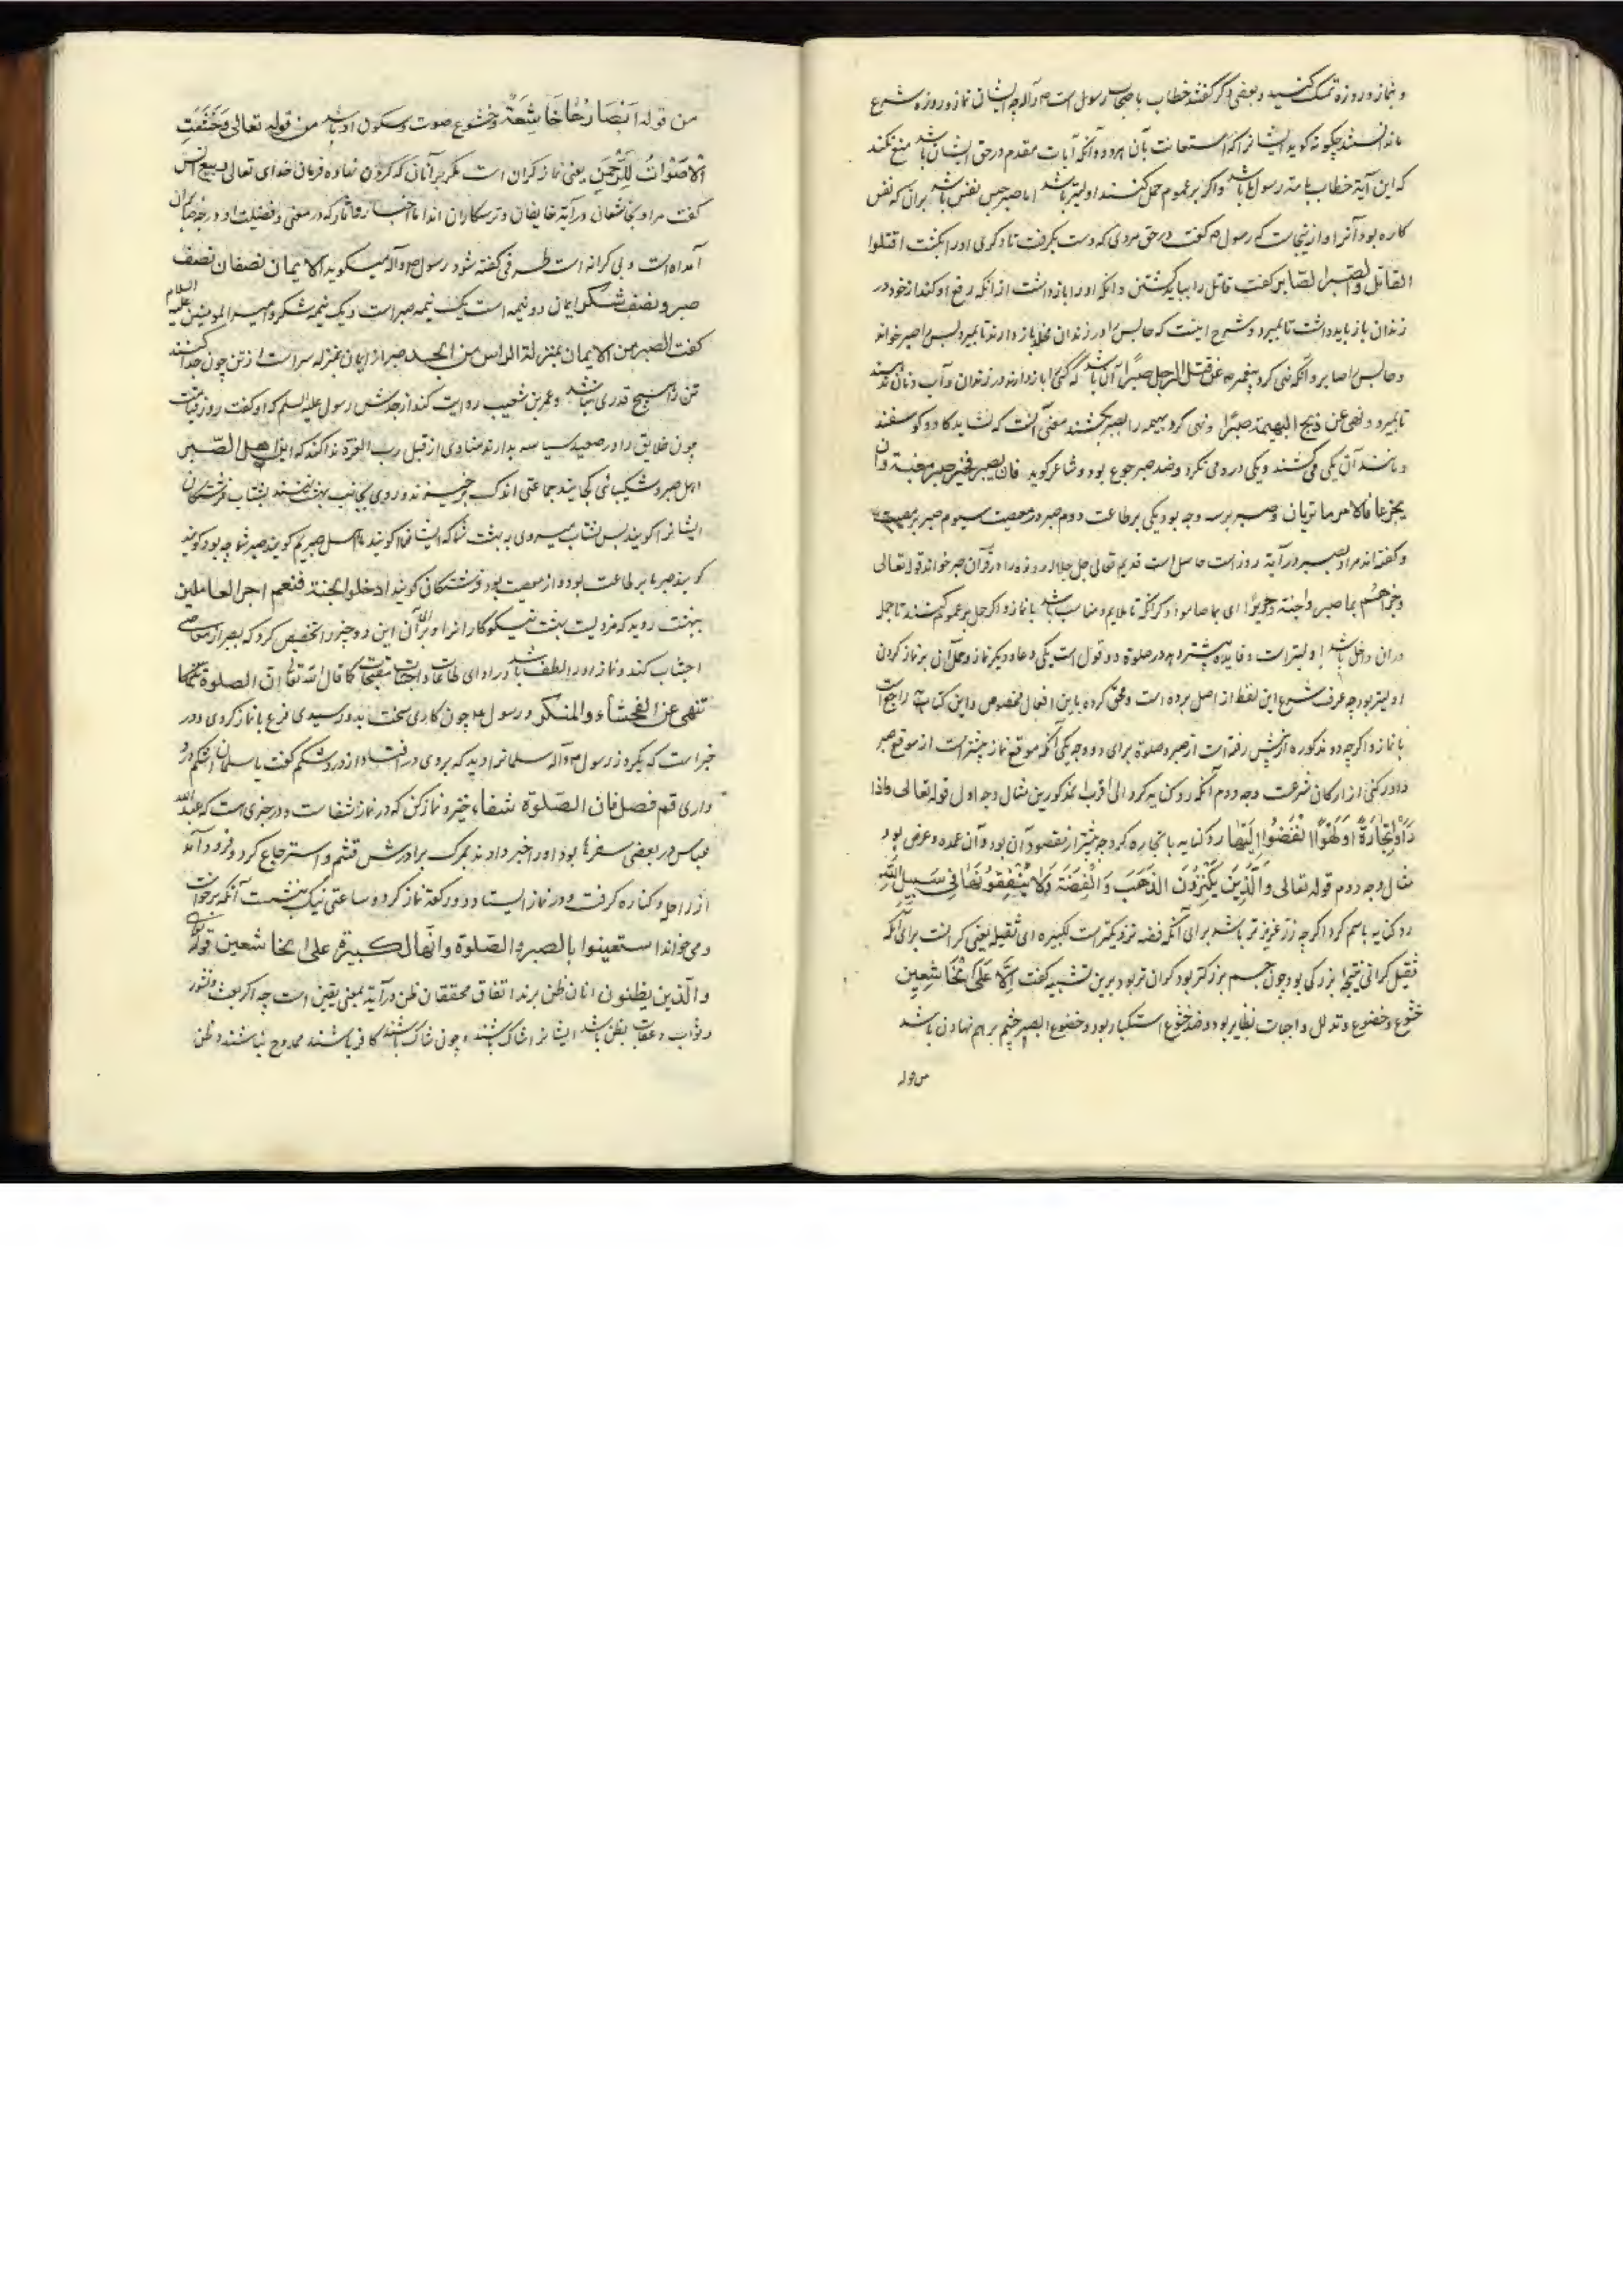 و نماز و روزه تمسک کنید و بعضی دگر گفتند خطاب با صحاب رسول است ص و آله چه ایشان نماز و روزه شرع
ندانستند چگونه گوید ایشانرا که استعانت بآن هر دو و آنکه آیات مقدم در حق ایشان باشد منع نکند
که این آیة خطاب با امت رسول باشد و اگر بر عموم حمل کنند اولیتر باشد اما صبر حبس نفس باشد بران که نفس
کاره بود آنرا و ازینجاست که رسول ص گفت در حق مردی که دست بگرفت تا دگری او را بکشت اقتلوا
القاتل و اصبروا الصابر گفت قاتل را بباید کشتن و انکه او را بازداشت از انکه رفع او کند از خود در
زندان باز باید داشت تا بمیرد و شرح اینست که حابس را در زندان مخلد باز دارند تا بمیرد پس را صبر خواند
و حابس را صابر و آنکه نهی کرد پیغمبر ص عن قتل الرجل صبرًا آن باشد که کسی را باز دارند در زندان و آب و نان ندهند
تا بمیرد و نهی عن ذبح البهیمة صبرًا و نهی کرد بهیمه را بصبر بکشند معنی آنست که نشاید گاو و گوسفند
و مانند آن یکی می کشند و یکی درو می نگرد و ضد صبر جزع بود و شاعر گوید فان تصبر فخیر صبر مغبة و ان
یجزعا فالامر ما تریان و صبر بر سه وجه بود یکی بر طاعت دوم صبر از معصیت سیوم صبر بر مصیبت
و گفته اند مراد بصبر در آیة روزه است حاصل است قدیم تعالی جل جلاله روزه را در قرآن صبر خواند قوله تعالی
وجزاهم بما صبروا جنة و حریرًا ای بما صاموا و گر آنکه تا ملایم و مناسب باشد با نماز و اگر حمل بر عموم کنند تا جمله
دران داخل باشد اولیتر است و فایده بیشتر دهد در صلوة دو قول است یکی دعا و دیگر نماز و حمل آن بر نماز کردن
اولیتر بود چه عرف شرع این لفظ از اصل برده است و محق کرده باین افعال مخصوص و این کنایت راجع است
با نماز و اگرچه دو مذکوره از پیش رفته است از صبر و صلوة برای دو وجه یکی آنکه موقع نماز بیشتر است از موقع صبر
و او رکنی از ارکان شرعست وجه دوم آنکه رد کنایه کرد الی اقرب المذکورین مثال وجه اول قوله تعالی و اذا
رَاَوْا تِجَارَةً اَوْ لَهْوًا انْفَضُّوا اِلَیْهَا رد کنایه با تجارة کرد چه بیشتر از مقصود آن بود و آن عمده و عرض بود
مثال وجه دوم قوله تعالی وَالَّذِینَ یَکْنِزُونَ الذَّهَبَ وَ الْفِضَّةَ وَلا یُنْفِقُونَهَا فِی سَبِیلِ اللهِ
رد کنایه باسم کرد اگرچه زر عزیز تر باشد برای آنکه فضه نزدیکتر است لکبیره ای ثقیله یعنی گرانست برای آنکه
ثقیل گرانی نتیجه بزرگی بود چون جسم بزرگتر بود گران تر بود برین تشبیه گفت اِلاّ عَلَی الْخَاشِعِینَ
خشوع و خضوع و تذلل و اخبات نظایر بود و ضد خشوع استکبار بود و خضوع البصر چشم برهم نهادن باشد
من قوله
من قوله اَبْصَارُهَا خَاشِعَةٌ و خشوع صوت و سکون او باشد من قوله تعالی وَخَشَعَتِ
الْاَصْوَاتُ لِلرَّحْمٰنِ یعنی نماز گران است مگر بر آنان که گردن نهاده فرمان خدای تعالی ربیع انس
گفت مراد بخاشعان در آیة خایفان و ترسکاران اند اما اخبار و آثار که در معنی و فضیلت او و درجه صابران
آمده است و بی کرانه است طرفی گفته شود رسول ص و آله میگوید الایمان نصفان نصف
صبر و نصف شکر ایمان دو نیمه است یک نیمه صبر است و یک نیمه شکر و امیر المومنین علیه السلام
گفت الصبر من الایمان بمنزلة الراس من الجسد صبر از ایمان بمنزله سر است از تن چون جدا کنند
تن را هیچ قدری نباشد و عمر بن شعیب روایت کند از جدش رسول علیه السلم که او گفت روز قیامت
چون خلایق را در صعید سیاسه بدارند منادی از قبل رب العزة ندا کند که این اهل الصّبر
اهل صبر و شکیبائی کجایند جماعتی اندک برخیزند و روی بجانب بهشت نهند بشتاب فرشتگان
ایشانرا گویند پس بشتاب میروی به بهشت شما که ایشان گویند ما اهل صبریم گویند صبر شما چه بود گویند
گویند صبر ما بر طاعت بود و از معصیت بود فرشتگان گویند ادخلوا الجنة فنعم اجر العاملین
ببهشت روید که مزد نیست بهشت نیکوکارانرا و برای آن این دو چیز را تخصیص کرد که بصبر از معاصی
اجتناب کند و نماز او را لطف باشد در ادای طاعات و اجتناب مقبحات کما قال الله تعالی ان الصلوة
تنهی عن الفحشاء والمنکر و رسول ص چون کاری سخت بدو رسیدی فزع با نماز کردی و در
خبر است که یکروز رسول ص و آله سلمانرا دید که بروی در افتاده از درد شکم گفت یا سلمان اشکم درد
داری قم فصل فان الصّلوة شفاء خیز و نماز کن که در نماز شفاست و در خبری است که عبد الله
عباس در بعضی سفرها بود او را خبر دادند بمرگ برادرش قثم و استرجاع کرد و فرود آمد
از راحله و کناره گرفت و در نماز ایستاد و دو رکعة نماز کرد و ساعتی نیک بنشست آنگه برخواست
و می خواند استعینوا بالصبر والصّلوة وانّها لکبیرة الا علی الخاشعین قوله
والّذین یظنون انان ظن برند اتفاق محققان ظن در آیة بمعنی یقین است چه اگر بعث و نشور
و ثواب و عقاب بظن باشد ایشانرا شاک باشند و چون شاک باشند کافر باشند ممدوح نباشند و ظن